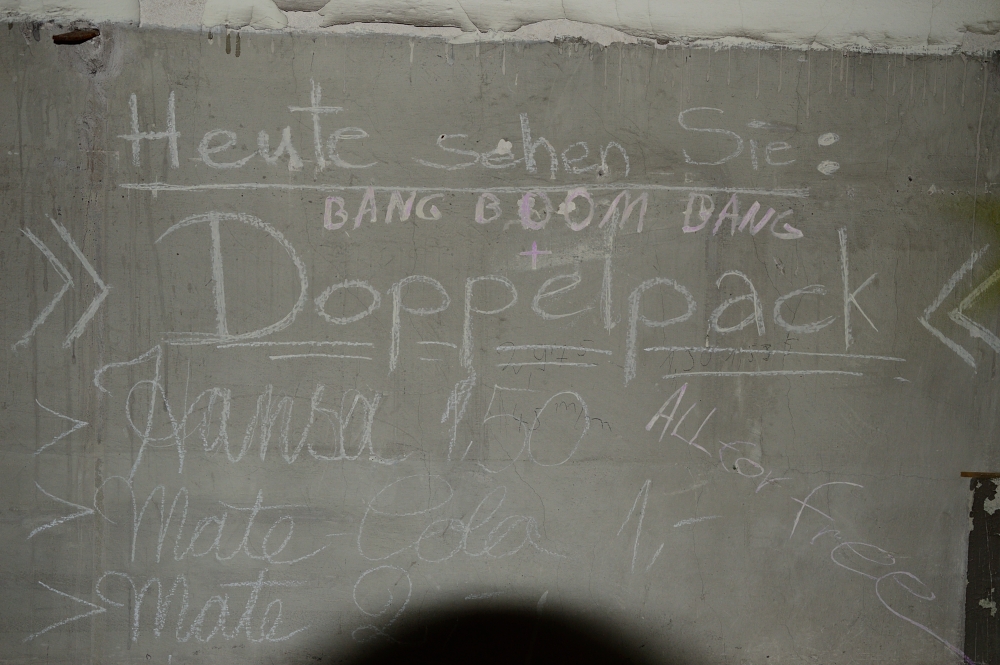 Heute sehen Sie:
BANG BOOM BANG
+
>> Doppelpack <
> Hansa 1,50
ALL for free
> Mate-Cola 1,-
> Mate 2,-